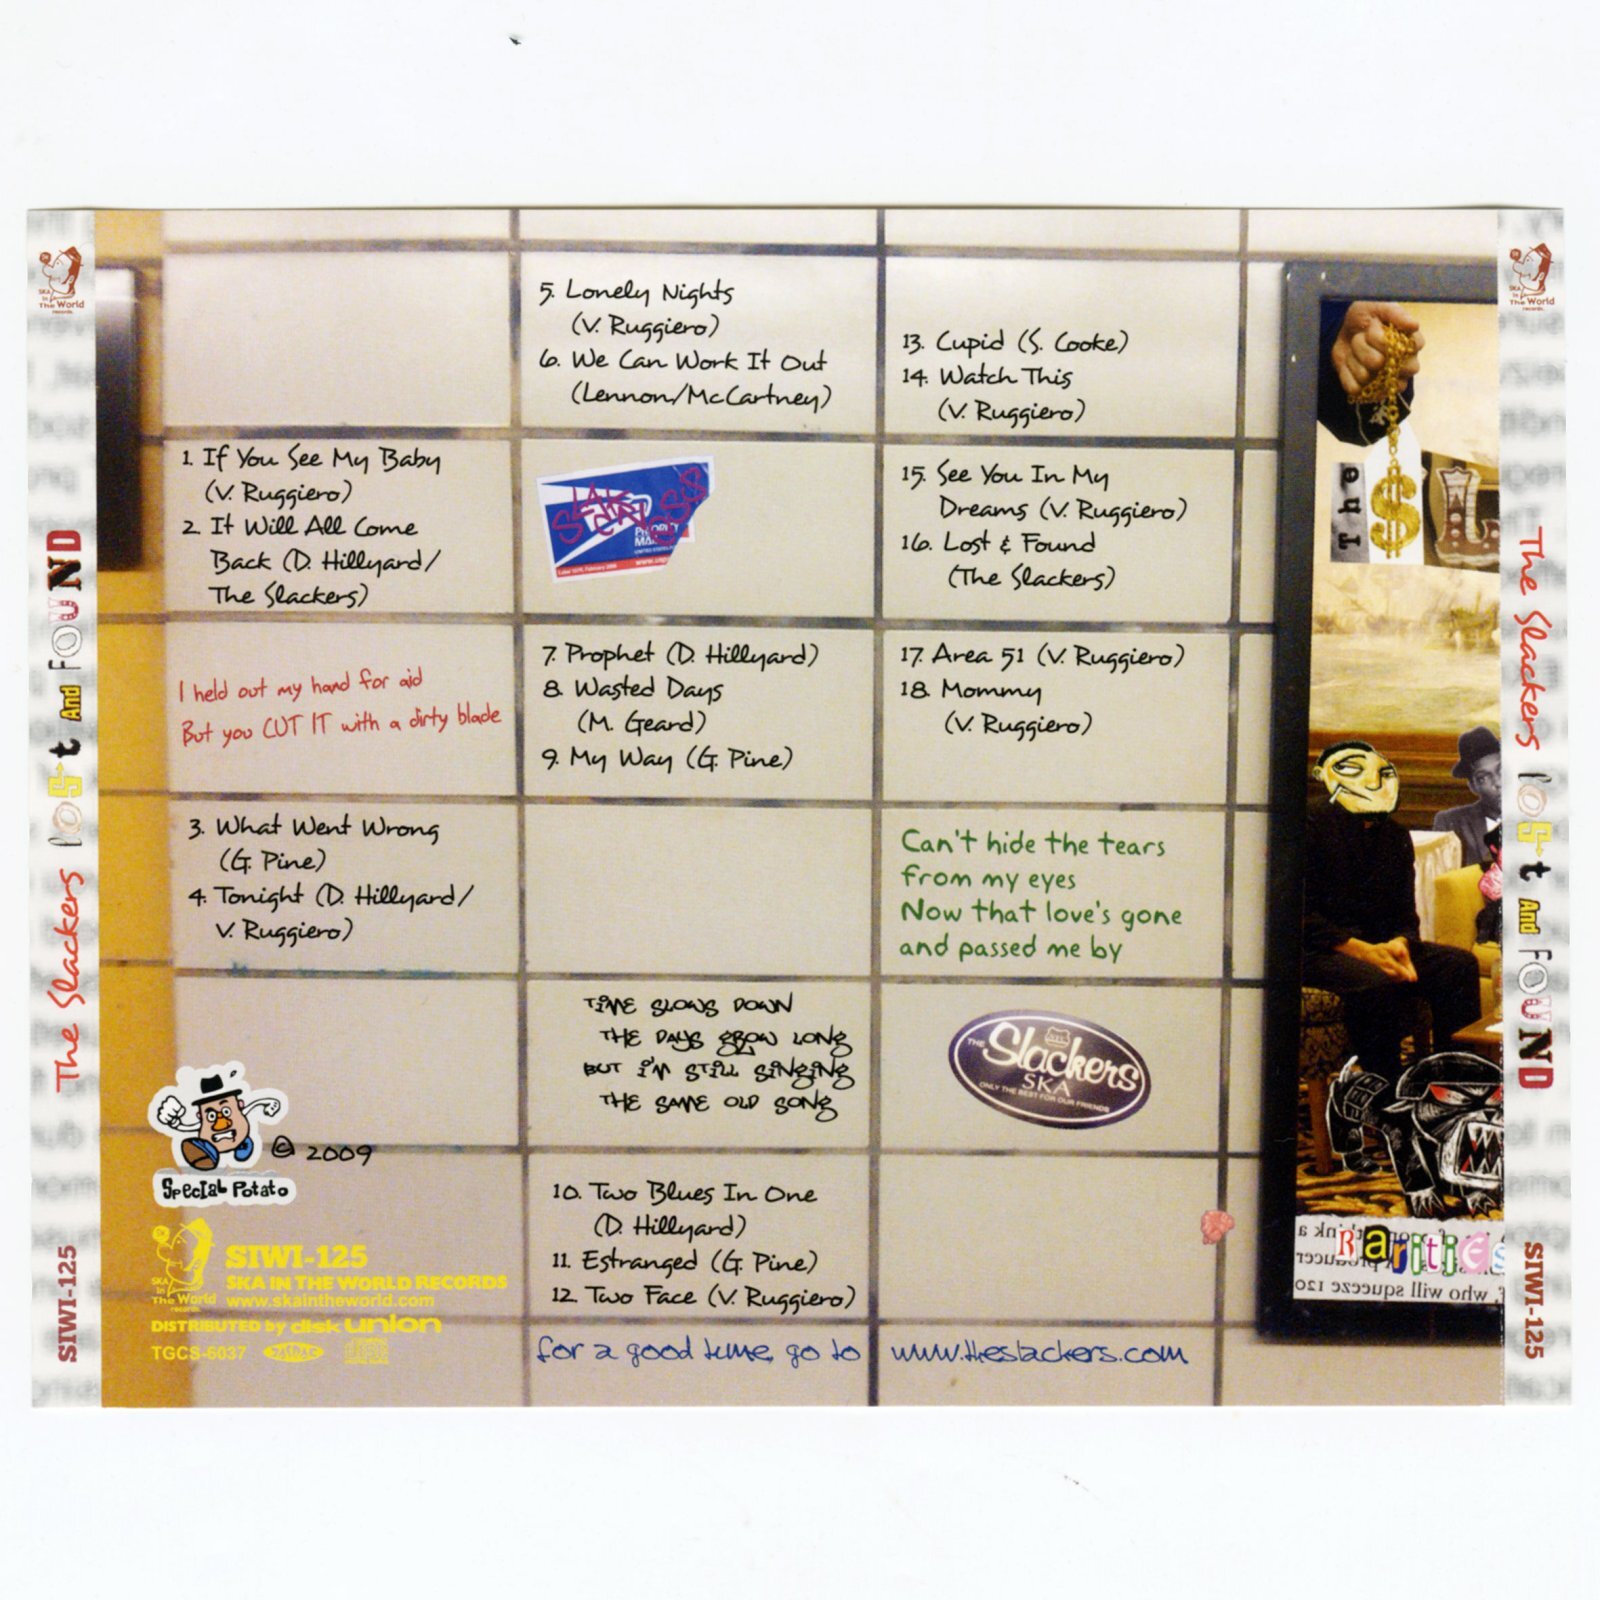 SKA
in
The World
records.
The Slackers lost And FOUND
SIWI-125
1. If You See My Baby
(V. Ruggiero)
2. It Will All Come
Back (D. Hillyard/
The Slackers)
I held out my hand for aid
But you CUT IT with a dirty blade
3. What Went Wrong
(G. Pine)
4. Tonight (D. Hillyard/
V. Ruggiero)
Special Potato
© 2009
SKA
in
The World
records.
SIWI-125
SKA IN THE WORLD RECORDS
www.skaintheworld.com
DISTRIBUTED by disk union
TGCS-6037
5. Lonely Nights
(V. Ruggiero)
6. We Can Work It Out
(Lennon/McCartney)
PRIORITY
MAIL
UNITED STATES
Label 107R, February 2006
7. Prophet (D. Hillyard)
8. Wasted Days
(M. Geard)
9. My Way (G. Pine)
TIME SLOWS DOWN
THE DAYS GROW LONG
BUT I'M STILL SINGING
THE SAME OLD SONG
10. Two Blues In One
(D. Hillyard)
11. Estranged (G. Pine)
12. Two Face (V. Ruggiero)
for a good time, go to www.theslackers.com
13. Cupid (S. Cooke)
14. Watch This
(V. Ruggiero)
15. See You In My
Dreams (V. Ruggiero)
16. Lost & Found
(The Slackers)
17. Area 51 (V. Ruggiero)
18. Mommy
(V. Ruggiero)
Can't hide the tears
from my eyes
Now that love's gone
and passed me by
THE
Slackers
SKA
ONLY THE BEST FOR OUR FRIENDS
The $L
Rarities
will squeeze 120
, who
SKA
in
The World
records.
The Slackers lost And FOUND
SIWI-125